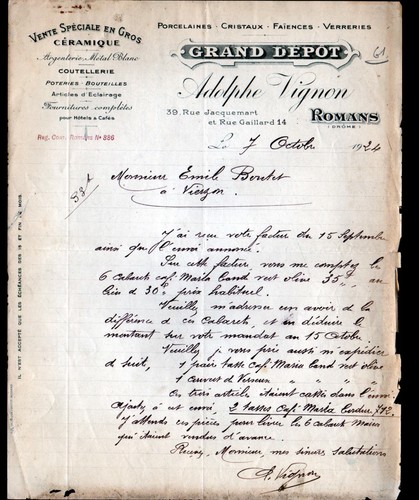 Vente Spéciale en Gros
CÉRAMIQUE
Argenterie, Métal Blanc
COUTELLERIE
POTERIES - BOUTEILLES
Articles d'Eclairage
Fournitures complètes
pour Hôtels & Cafés
Reg. Com. Romans N° 886
PORCELAINES - CRISTAUX - FAÏENCES - VERRERIES
GRAND DÉPOT
61
Adolphe Vignon
39, Rue Jacquemart
et Rue Gaillard 14
ROMANS
(DRÔME)
Le 7 Octobre 1924
Monsieur Emile Boutet
à Vierzon.
J'ai reçu votre facture du 15 Septembre
ainsi que l'envoi annoncé.
Sur cette facture vous me comptez les
6 cabarets caf. Marta Cand vert olive 35 au
lieu de 30 prix habituel.
Veuillez m'adresser un avoir de la
différence de ces Cabarets, et en déduire le
montant sur votre mandat au 15 Octobre
Veuillez je vous prie aussi m'expédier
de suite, 1 paire tasse Caf. Marta Cand vert olive
1 couvert de
Ces trois articles étaient cassés dans l'envoi
ajoutez à cet envoi 2 tasses Caf. Marta 792.
J'attends ces pièces pour livrer les 6 cabarets
qui étaient vendus d'avance.
Recevez, Monsieur, mes sincères salutations
A. Vignon
IL N'EST ACCEPTÉ QUE LES ÉCHÉANCES DES 15 ET FIN DE MOIS